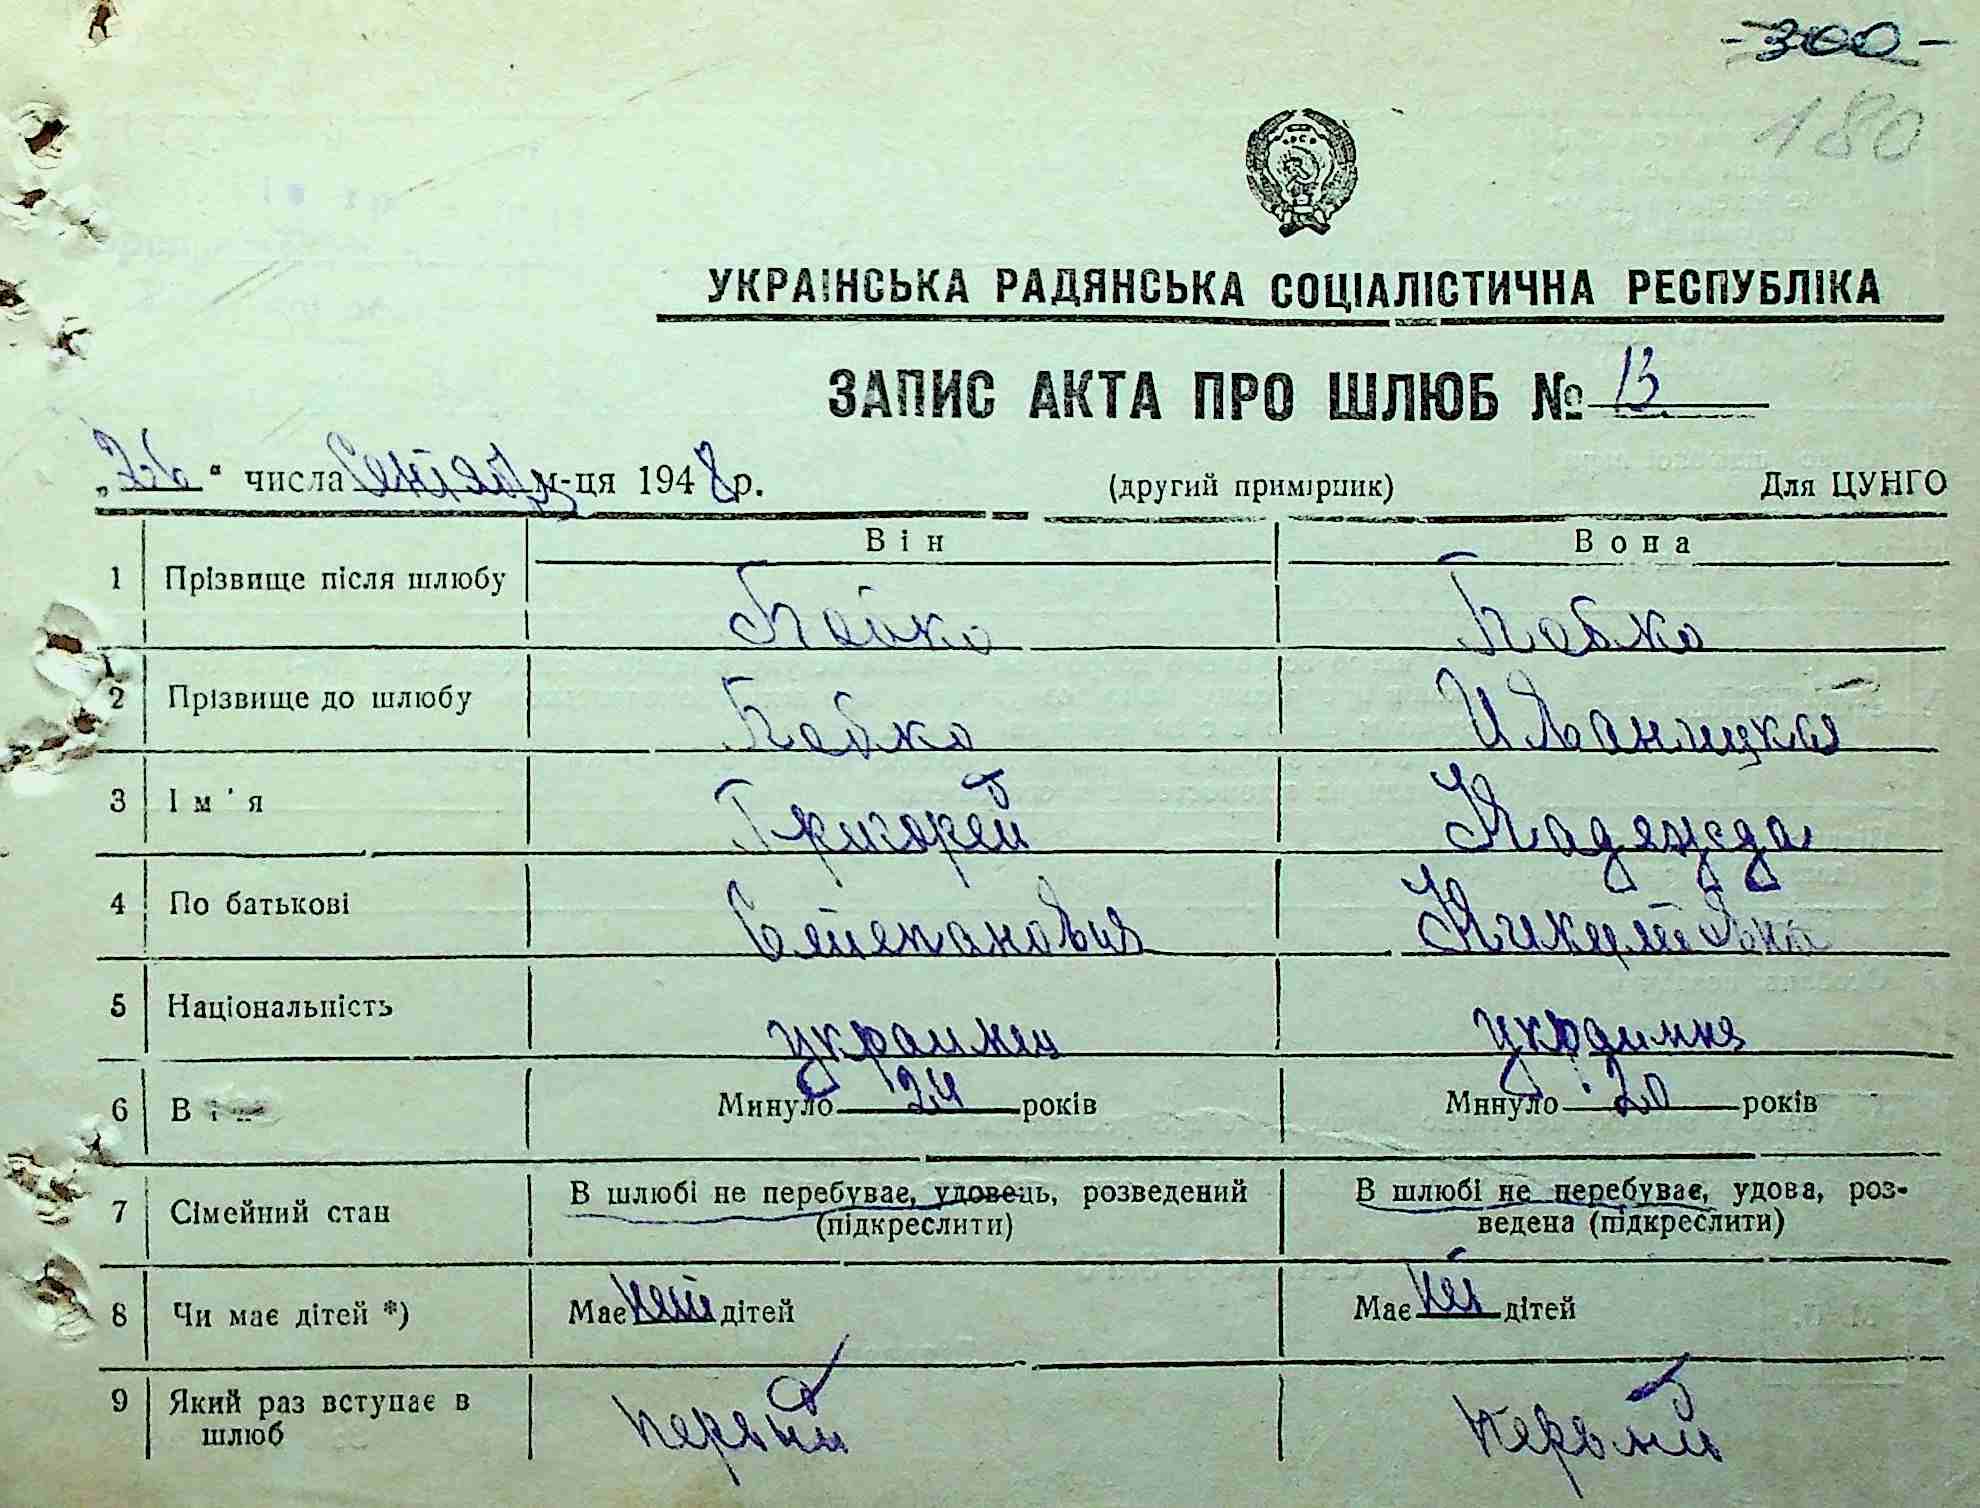 -300-
180
УКРАЇНСЬКА РАДЯНСЬКА СОЦІАЛІСТИЧНА РЕСПУБЛІКА
ЗАПИС АКТА ПРО ШЛЮБ № 13
„26“ числа Сентября м-ця 1948 р. (другий примірник) Для ЦУНГО
Він Вона
1 Прізвище після шлюбу Бобко Бобко
2 Прізвище до шлюбу Бобко Иваницкая
3 Ім'я Григорий Надежда
4 По батькові Степанович Никитовна
5 Національність украинец украинка
6 Вік Минуло 24 років Минуло 20 років
7 Сімейний стан В шлюбі не перебуває, удовець, розведений В шлюбі не перебуває, удова, роз-
(підкреслити) ведена (підкреслити)
8 Чи має дітей *) Має нет дітей Має нет дітей
9 Який раз вступає в первый первый
шлюб